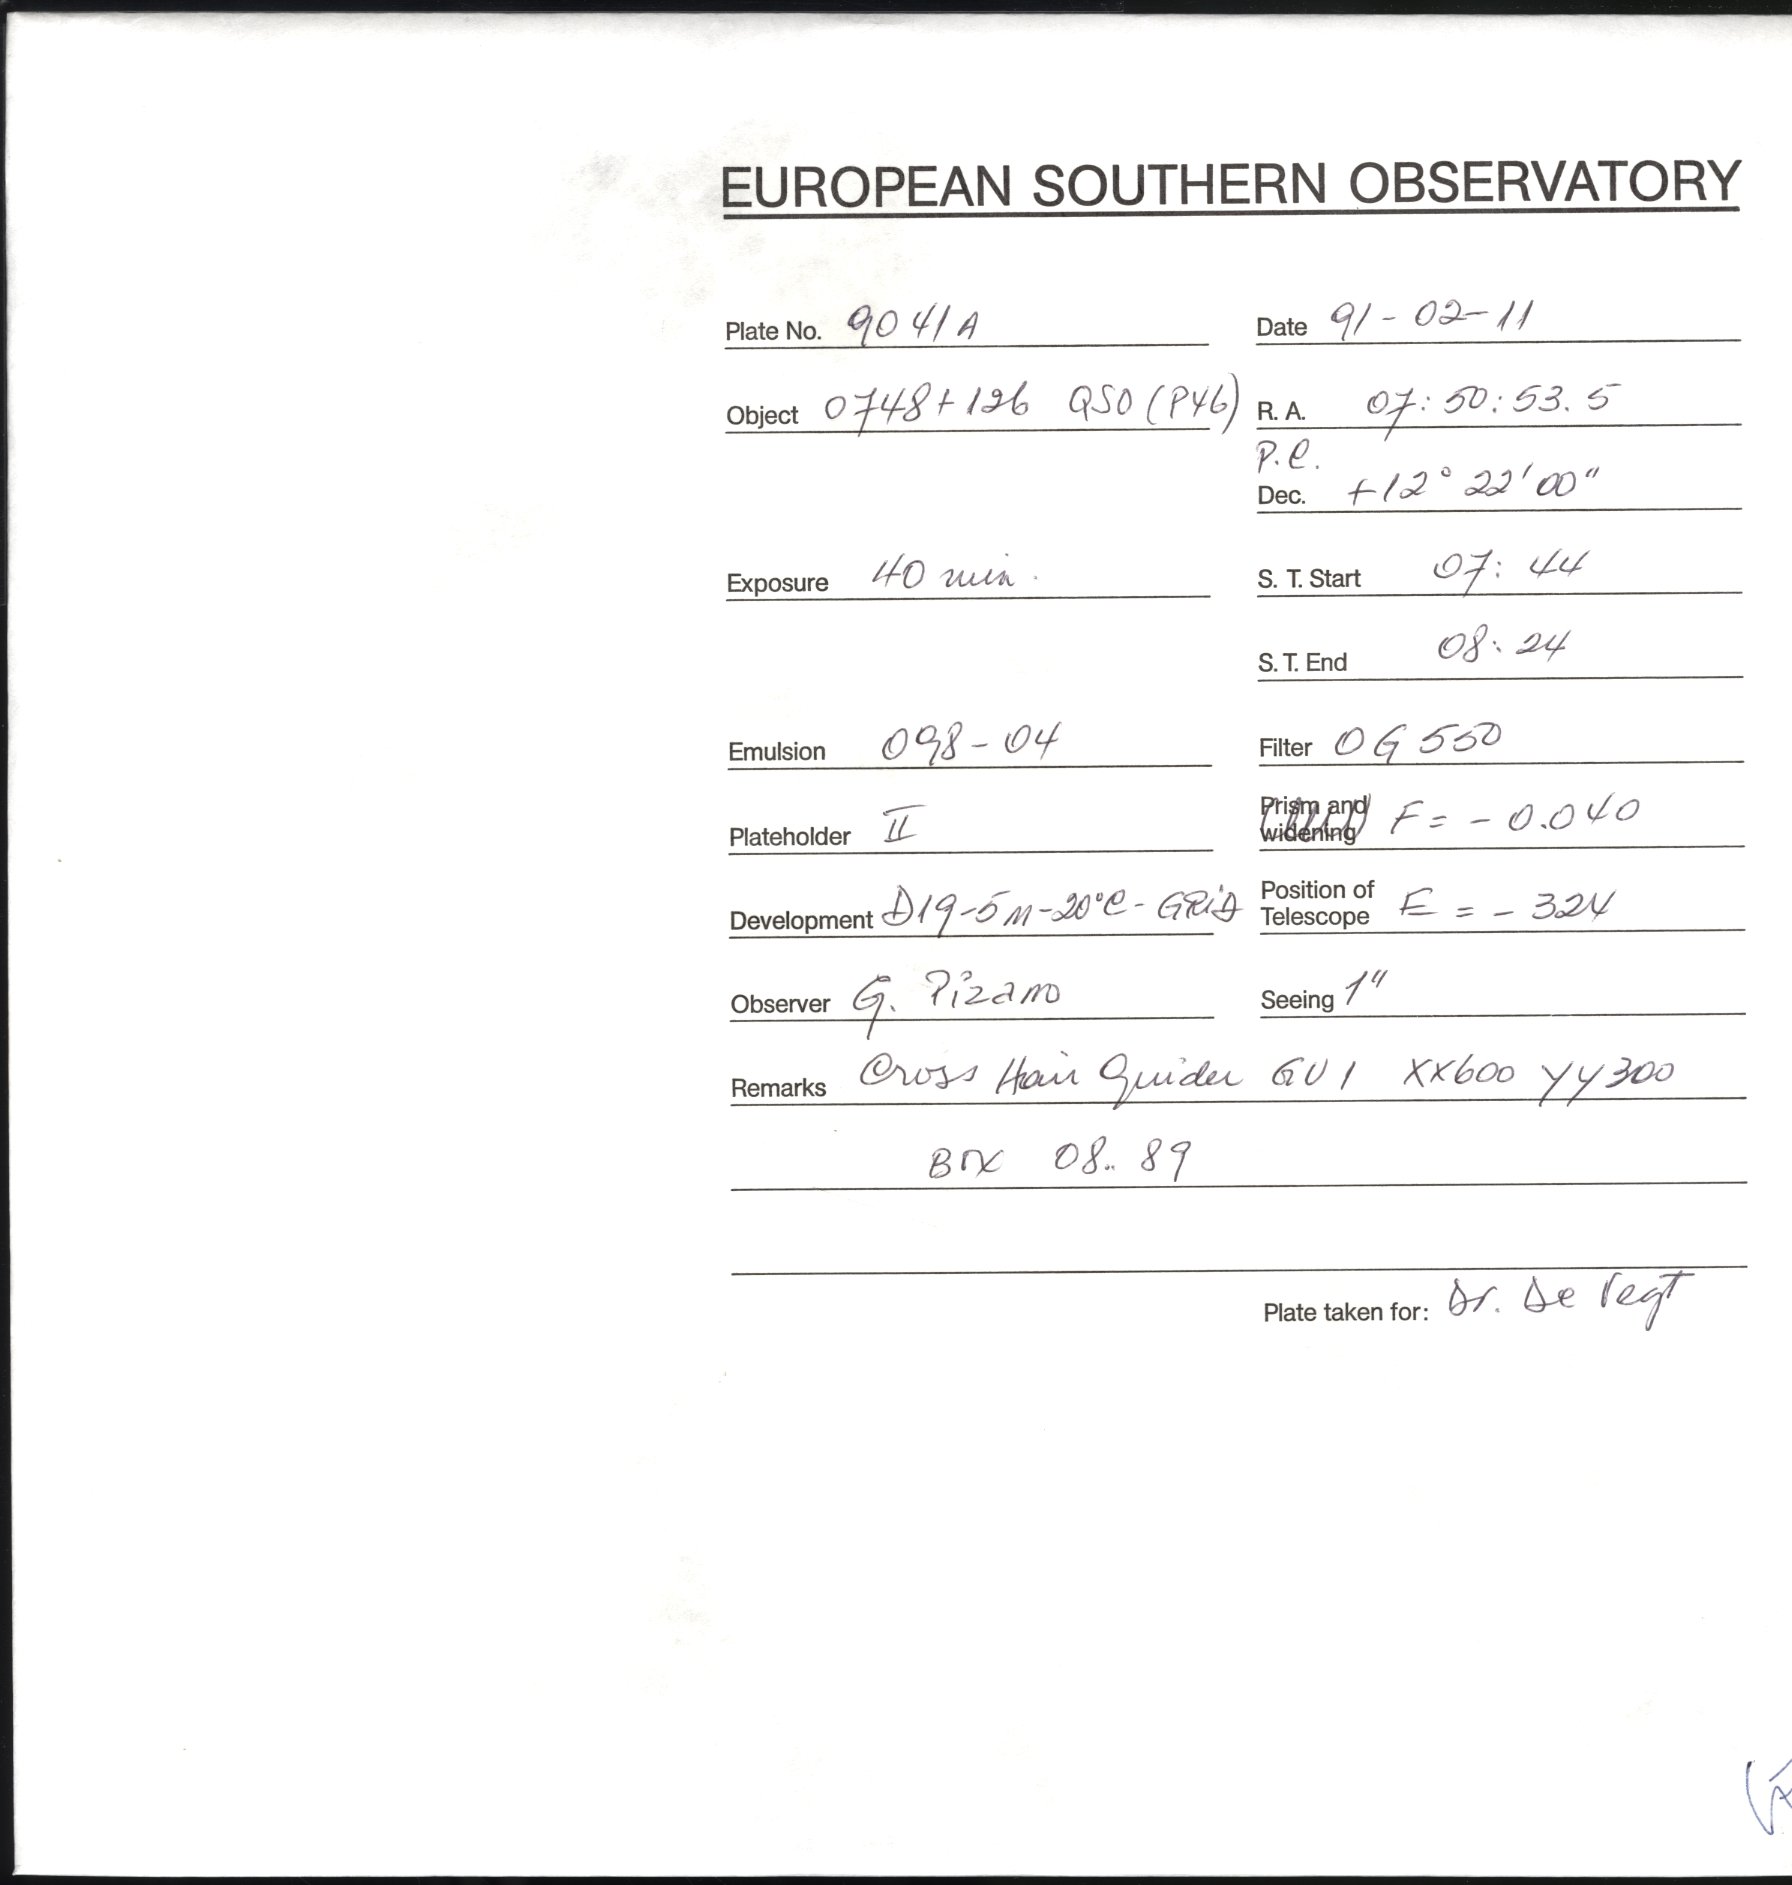 EUROPEAN SOUTHERN OBSERVATORY
Plate No. 9041A Date 91-02-11
Object 0748+126 QSO (P46) R. A. 07:50:53.5
P.C.
Dec. +12° 22' 00"
Exposure 40 min. S. T. Start 07:44
S. T. End 08:24
Emulsion 098-04 Filter OG 550
Plateholder II Prism and widening F = - 0.040
Development D19-5m-20°C-GRID Position of Telescope E = - 324
Observer G. Pizarro Seeing 1"
Remarks Cross Hair Guider GU1 XX600 YY300
BOX 08.. 89
Plate taken for: Dr. De Vegt